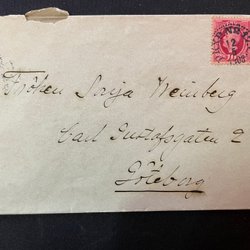 Fröken Sonja Weinberg
Carl Gustafsgatan 2
Göteborg